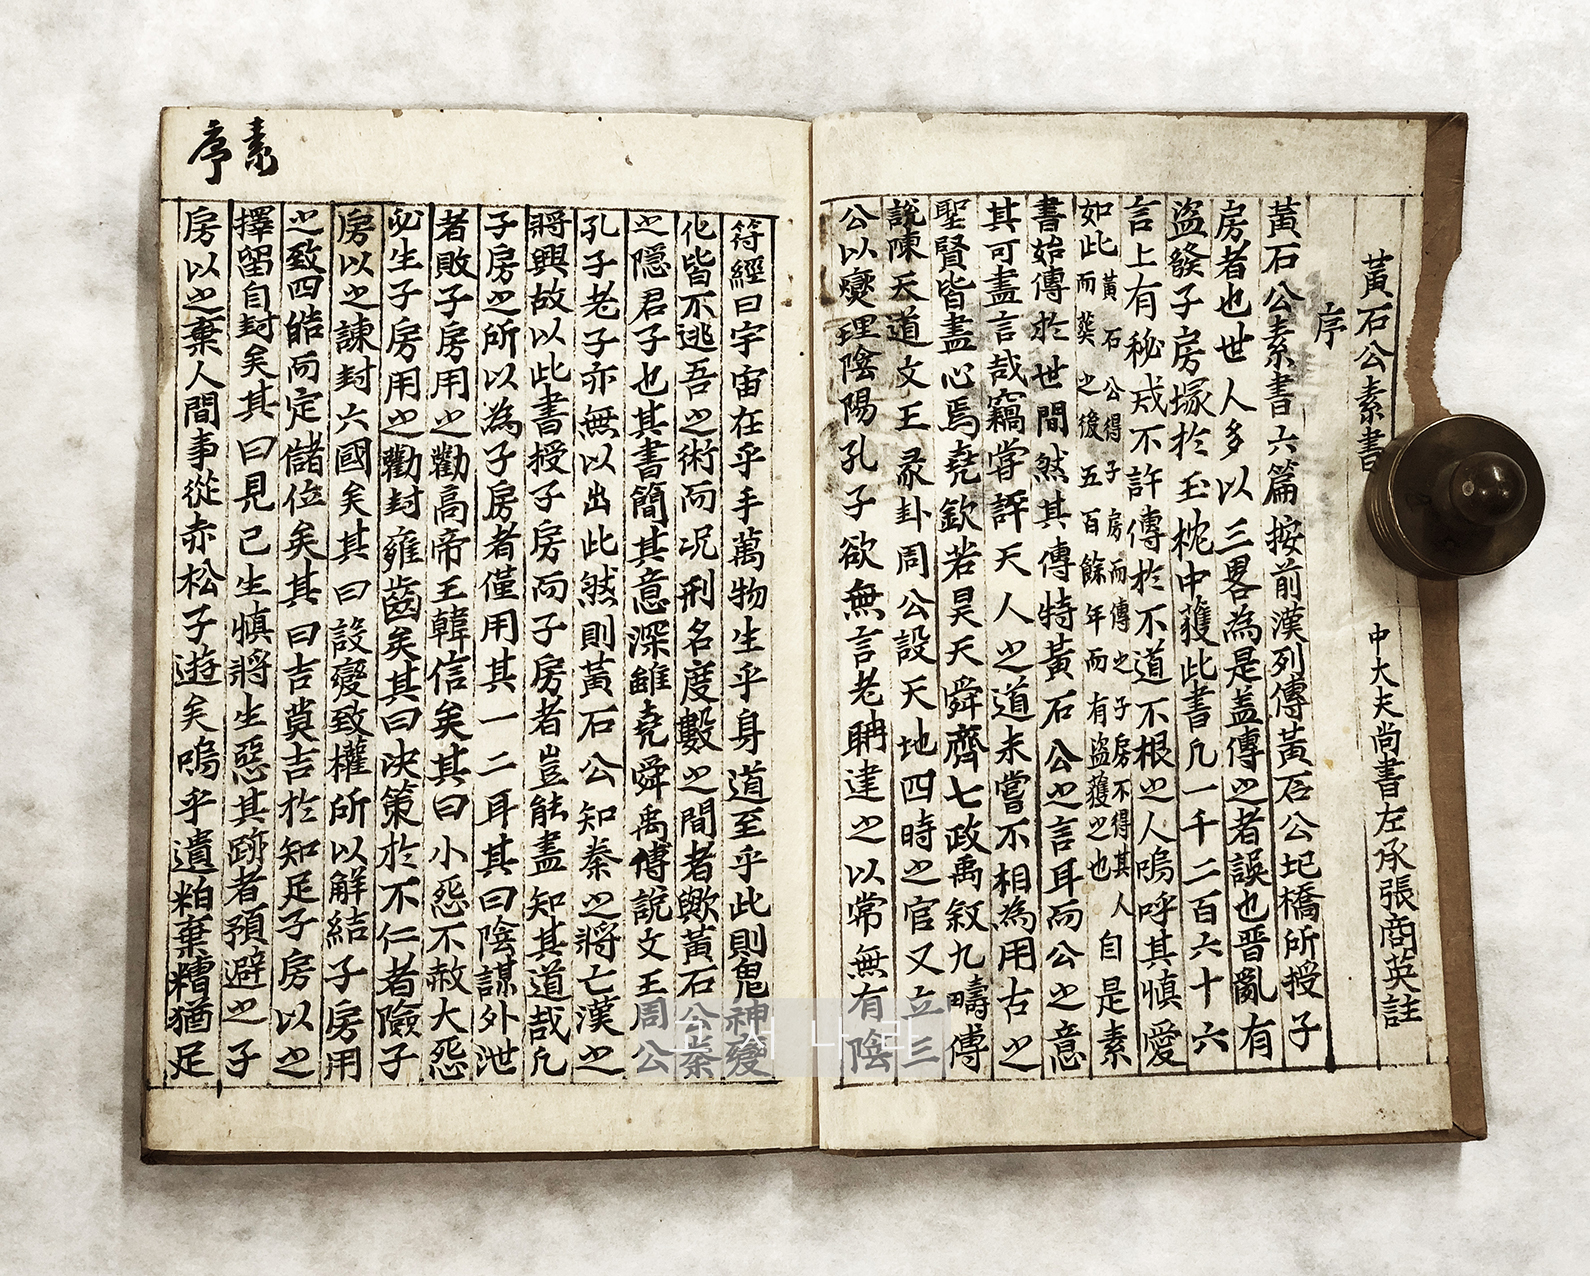 黃石公素書
中大夫尙書左丞張商英註
序
黃石公素書六篇按前漢列傳黃石公圯橋所授子
房者也世人多以三畧為是盖傳之者誤也晋亂有
盜發子房塚於玉枕中獲此書凡一千二百六十六
言上有秘戒不許傳於不道不根之人嗚呼其愼愛
如此黃石公得子房而傳之子房不得其人
而葬之後五百餘年而有盜獲之也自是素
書始傳於世間然其傳特黃石公之言耳而公之意
其可盡言哉竊嘗評天人之道未嘗不相為用古之
聖賢皆盡心焉堯欽若昊天舜齊七政禹叙九疇傅
說陳天道文王彖卦周公設天地四時之官又立三
公以燮理陰陽孔子欲無言老聃建之以常無有陰
符經曰宇宙在乎手萬物生乎身道至乎此則鬼神變
化皆不逃吾之術而况刑名度數之間者歟黃石公秦
之隱君子也其書簡其意深雖堯舜禹傅說文王周公
孔子老子亦無以出此然則黃石公知秦之將亡漢之
將興故以此書授子房而子房者豈能盡知其道哉凡
子房之所以為子房者僅用其一二耳其曰陰謀外泄
者敗子房用之勸高帝王韓信矣其曰小怨不赦大怨
必生子房用之勸封雍齒矣其曰決策於不仁者險子
房以之諫封六國矣其曰設變致權所以解結子房用
之致四皓而定儲位矣其曰吉莫吉於知足子房以之
擇留自封矣其曰見已生愼將生惡其跡者預避之子
房以之棄人間事從赤松子遊矣嗚乎遺粕棄糟猶足
素
序
고서 나라